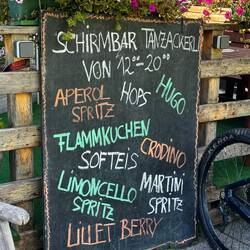 SCHIRMBAR TANZACKERL
VON 12⁰⁰-20⁰⁰
APEROL SPRITZ
HOPS
HUGO
FLAMMKUCHEN
SOFTEIS
CRODINO
LIMONCELLO SPRITZ
MARTINI SPRITZ
LILLET BERRY